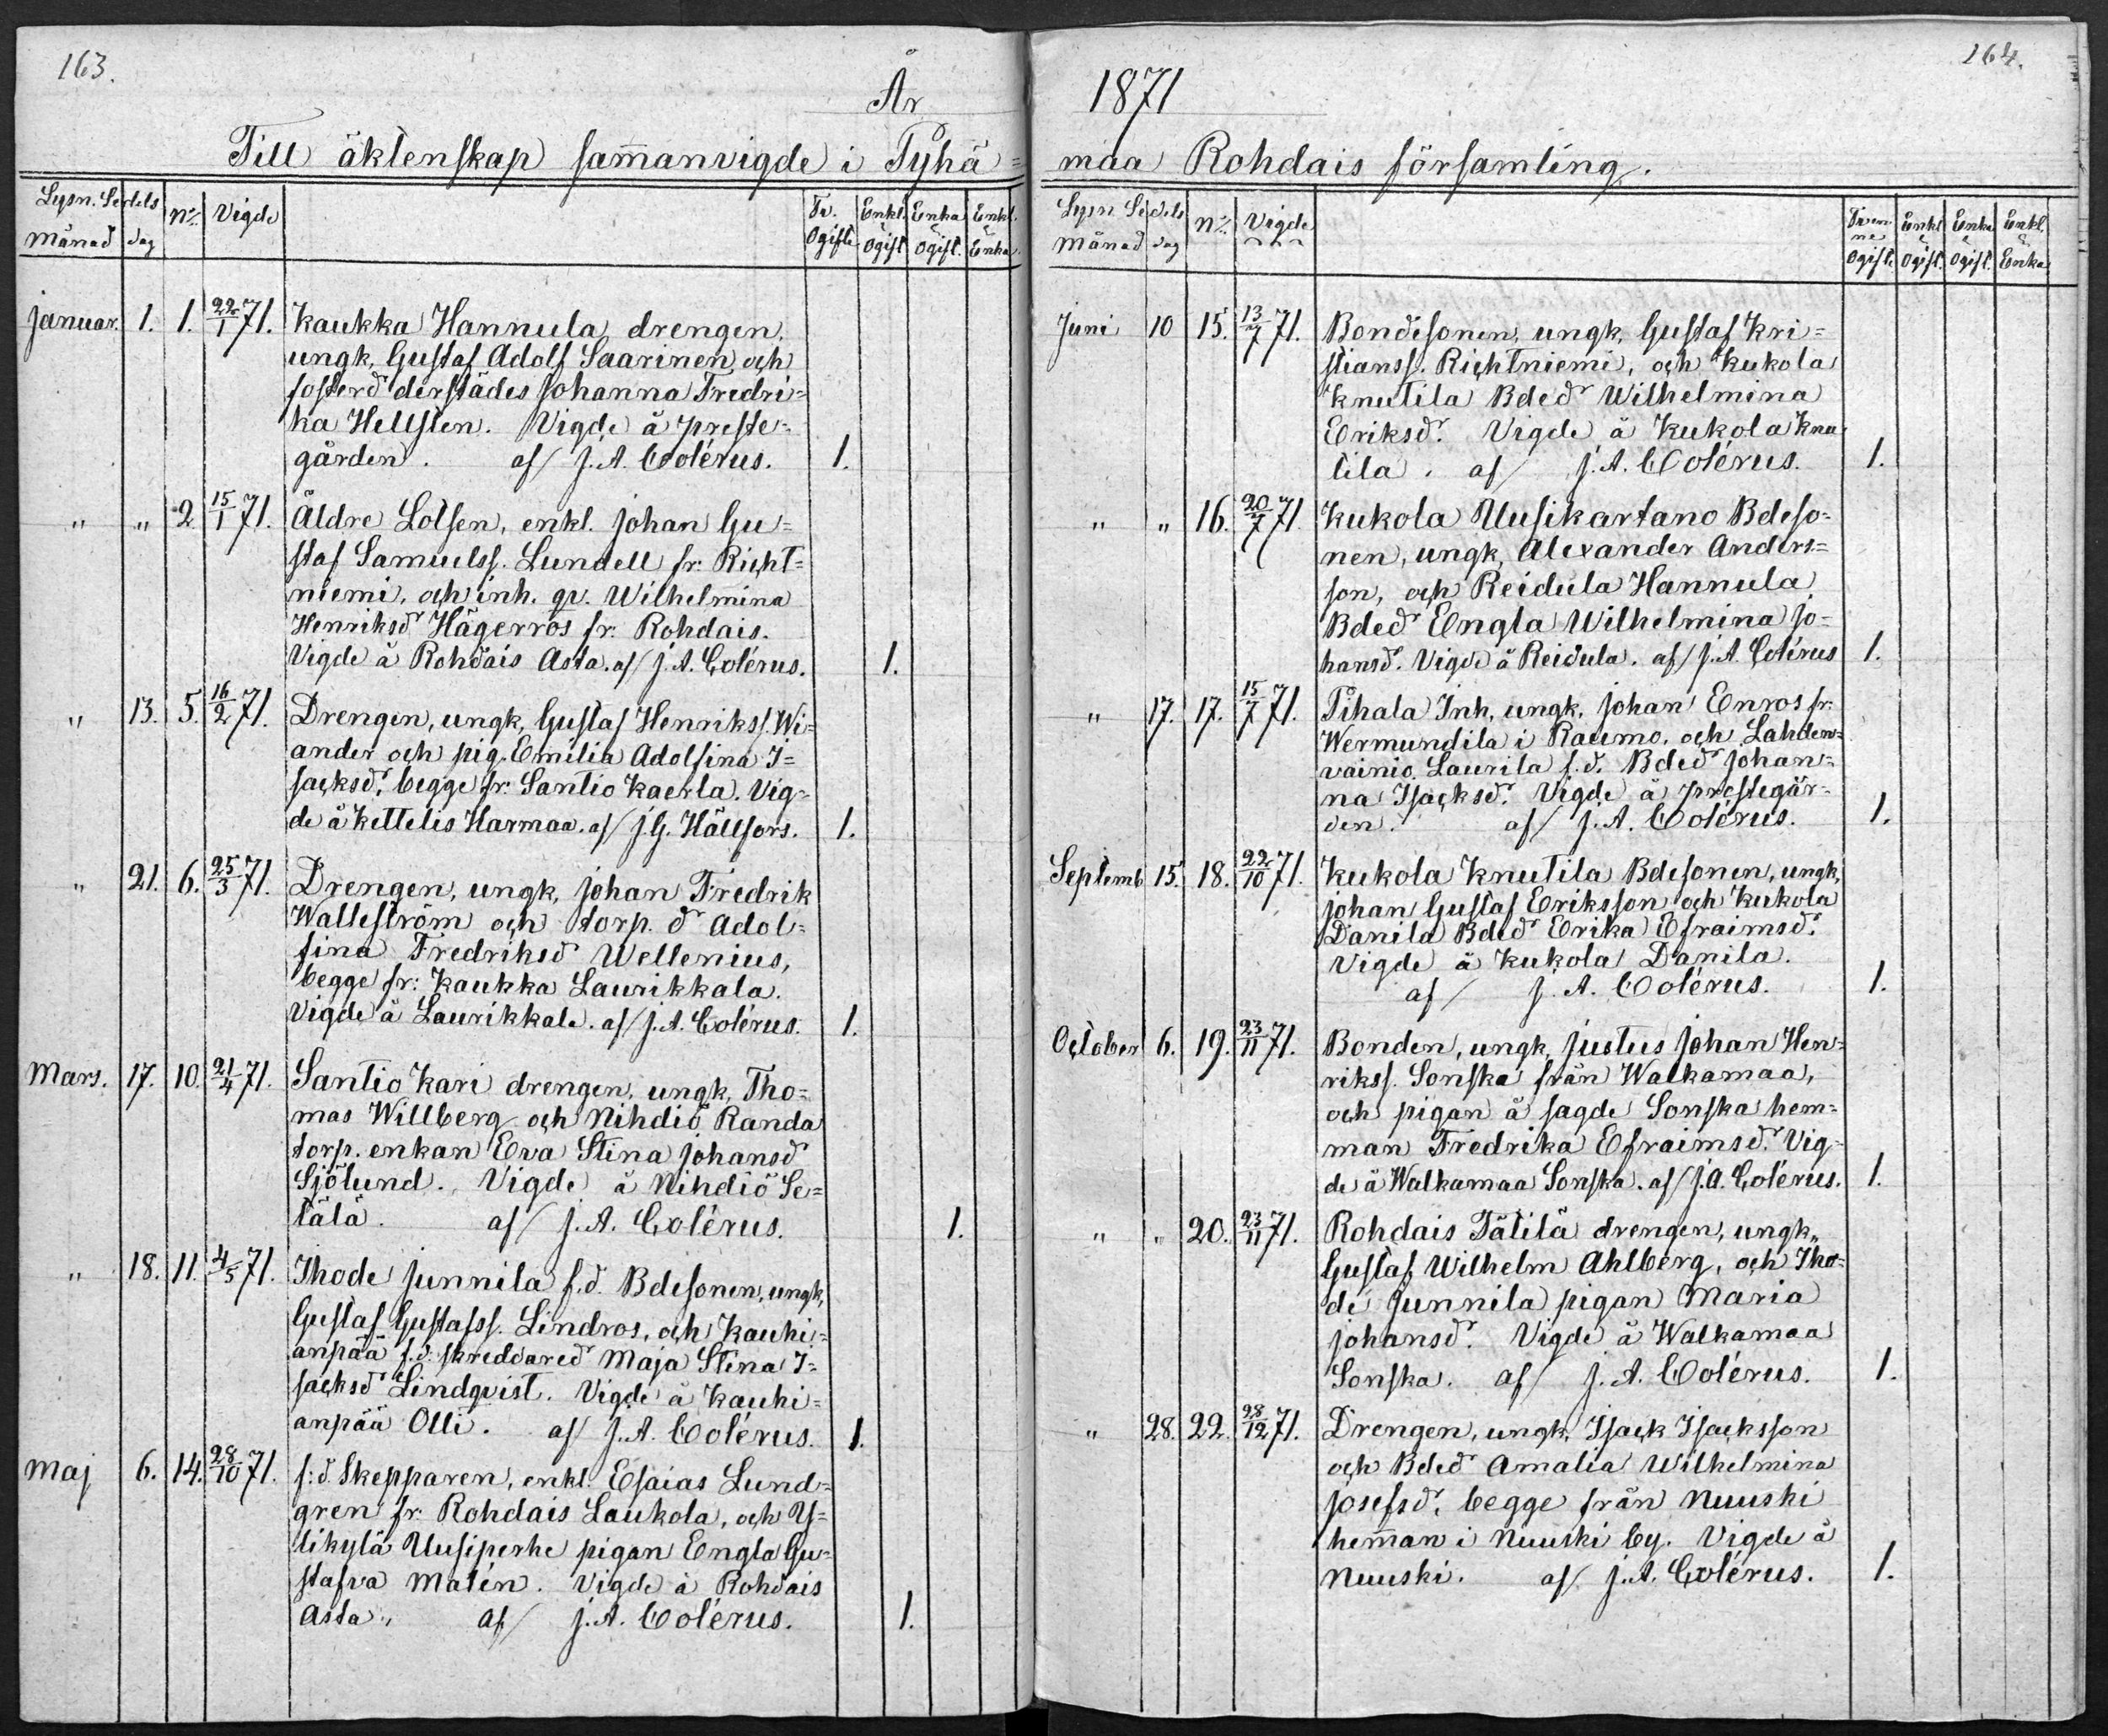 163.
År
Till äktenskap sam̄anvigde i Pyhä=
Lysn. Sedels
månad dag
No.
Vigde
Tv. Ogifte
Enkl. & Ogift.
Enka & Ogift.
Enkl. & Enka
januar. 1. 1. 22/1 71. Kaukka Hannula drengen,
ungk, Gustaf Adolf Saarinen, och
fosterd derstädes Johanna Fredri=
ka Hellsten. Vigde å preste=
gården. af/ J. A. Colérus. 1.
" " 2 15/1 71. Äldre Lotsen, enkl. Johan Gu=
staf Samuelss. Lundell fr: Richt=
niemi, och inh. qv. Wilhelmina
Henriksd Hägerros fr: Rohdais.
Vigde å Rohdais Asta. af/ J. A. Colérus. 1.
" 13. 5. 16/2 71. Drengen, ungk, Gustaf Henrikss. Wi=
ander och pig. Emilia Adolfina I=
sacksd. begge fr: Santio Kaerla. Vig=
de å Kettelis Harmaa. af/ J. G. Hällfors. 1.
" 21. 6. 25/3 71. Drengen, ungk, Johan Fredrik
Walleström och torp. d Adol=
fina Fredriksd Wellenius,
begge fr: Kaukka Laurikkala.
Vigde å Laurikkala. af/ J. A. Colérus. 1.
Mars. 17. 10. 21/4 71. Santio Kari drengen, ungk, Tho=
mas Willberg och Nihdiö Randa
torp. enkan Eva Stina Johansd
Sjölund. Vigde å Nihdiö Se=
tälä. af/ J. A. Colérus. 1.
" 18. 11. 4/5 71. Ihode Junnila f.d. Bdesonen, ungk,
Gustaf Gustafss. Lindros, och Kauhi=
anpää f.d. skreddared Maja Stina I=
sacksd Lindqvist. Vigde å Kauhi=
anpää Olli. af/ J. A. Colérus. 1.
Maj 6. 14. 28/10 71. f:d. Skepparen, enkl. Esaias Lund=
gren fr: Rohdais Laukola, och Y=
likylä Uusiperhe pigan Engla Gu=
stafva Malén. Vigde å Rohdais
Asta. af/ J. A. Colérus. 1.
164.
1871
maa Rohdais församling.
Lysn Sedels
månad dag
No.
Vigde
Ogift.
Enkl & Ogift.
Enka & Ogift.
Enkl. & Enka
Juni 10 15. 13/7 71. Bondesonen, ungk, Gustaf Kri=
stianss. Richtniemi, och Kukola
Knutila Bded Wilhelmina
Eriksd. Vigde å Kukola Knu
tila. af/ J. A. Colérus. 1.
" " 16. 20/7 71. Kukola Uusikartano Bdeso=
nen, ungk, Alexander Anders=
son, och Reidula Hannula
Bded Engla Wilhelmina Jo=
hansd. Vigde å Reidula. af/ J. A. Colérus 1.
" 17. 17. 15/7 71. Pihala Inh, ungk. Johan Enros fr:
Wermundila i Raumo, och Lahden=
vainio Laurila f.d. Bded Johan=
na Isacksd. Vigde å prestegår=
den. af/ J. A. Colérus. 1.
Septemb 15. 18. 22/10 71. Kukola Knutila Bdesonen, ungk,
Johan Gustaf Eriksson och Kukola
Danila Bded Erika Efraimsd.
Vigde å Kukola Danila.
af/ J. A. Colérus. 1.
October 6. 19. 23/11 71. Bonden, ungk, Justus Johan Hen=
rikss. Sonska från Walkamaa,
och pigan å sagde Sonska hem=
man Fredrika Efraimsd. Vig=
de å Walkamaa Sonska. af/ J. A. Colérus. 1.
" " 20. 23/11 71. Rohdais Tätilä drengen, ungk,
Gustaf Wilhelm Ahlberg, och Iho=
de Junnila pigan Maria
Johansd. Vigde å Walkamaa
Sonska. af/ J. A. Colérus. 1.
" 28. 22. 28/12 71. Drengen, ungk, Isack Isacksson
och Bded Amalia Wilhelmina
Josefsd. begge från Nuuski
hem̄an i Nuuski by. Vigde å
Nuuski. af/ J. A. Colérus. 1.